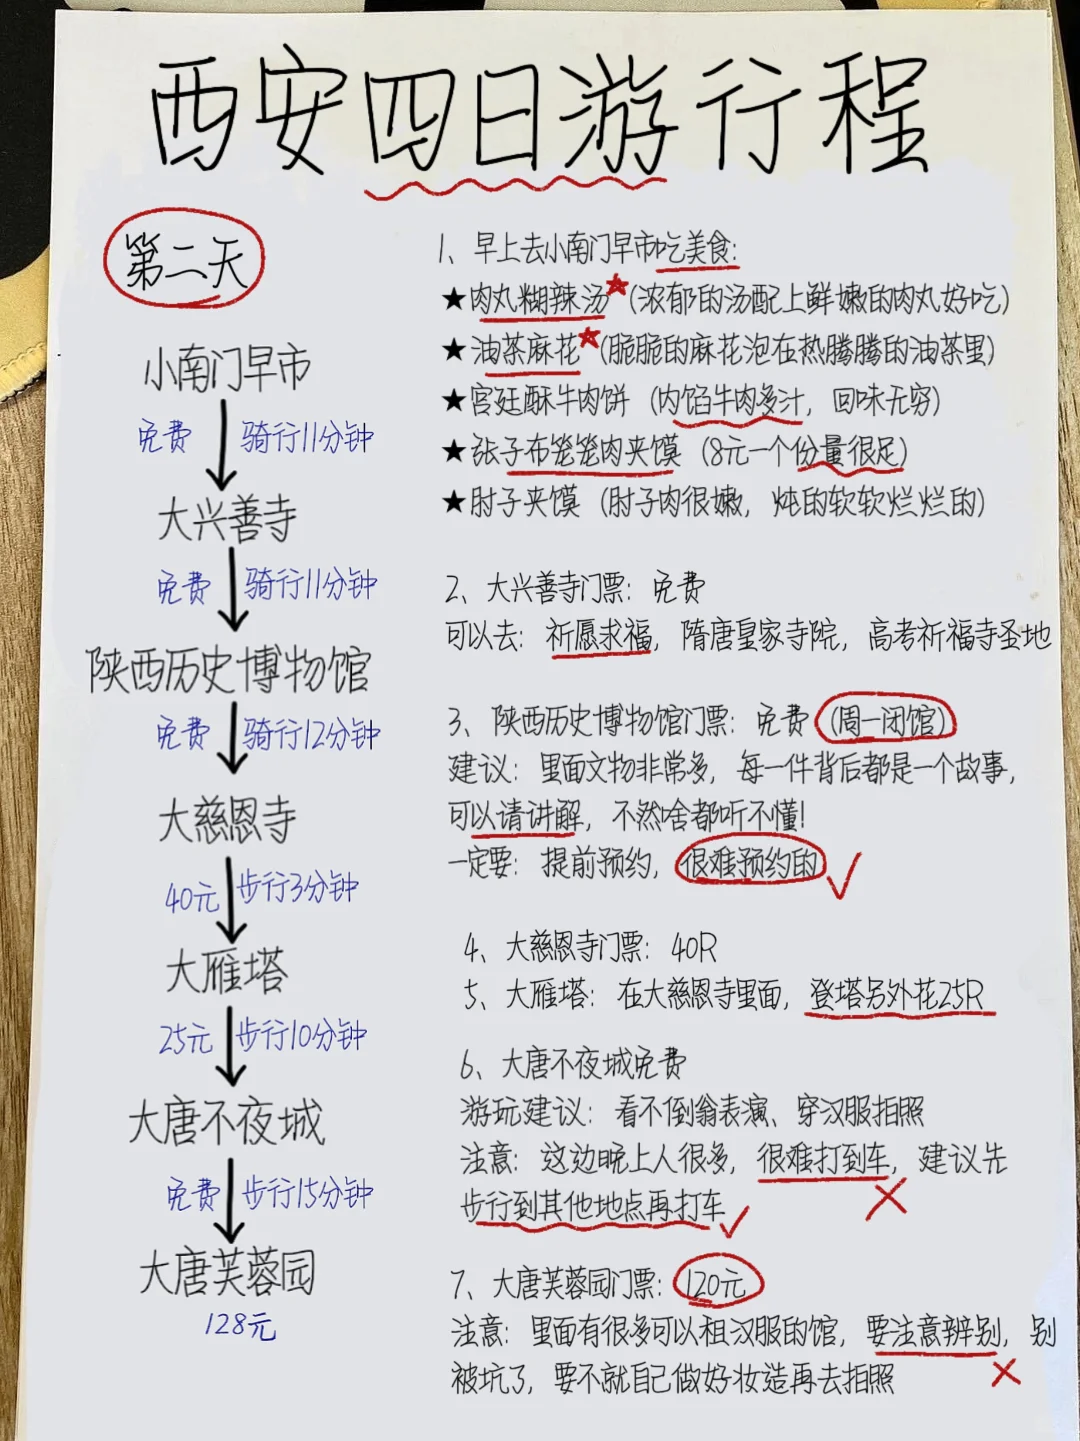 西安四日游行程
第二天
小南门早市
免费 骑行11分钟
大兴善寺
免费 骑行11分钟
陕西历史博物馆
免费 骑行12分钟
大慈恩寺
40元 步行3分钟
大雁塔
25元 步行10分钟
大唐不夜城
免费 步行15分钟
大唐芙蓉园
128元
1、早上去小南门早市吃美食:
★肉丸糊辣汤☆(浓郁的汤配上鲜嫩的肉丸好吃)
★油茶麻花☆(脆脆的麻花泡在热腾腾的油茶里)
★宫廷酥牛肉饼 (内馅牛肉多汁，回味无穷)
★张子布笼笼肉夹馍 (8元一个份量很足)
★肘子夹馍 (肘子肉很嫩，炖的软软烂烂的)
2、大兴善寺门票: 免费
可以去: 祈愿求福，隋唐皇家寺院，高考祈福寺圣地
3、陕西历史博物馆门票: 免费 (周一闭馆)
建议: 里面文物非常多，每一件背后都是一个故事，
可以请讲解，不然啥都听不懂!
一定要: 提前预约，很难预约的
4、大慈恩寺门票: 40R
5、大雁塔: 在大慈恩寺里面，登塔另外花25R
6、大唐不夜城免费
游玩建议: 看不倒翁表演、穿汉服拍照
注意: 这边晚上人很多，很难打到车，建议先
步行到其他地点再打车
7、大唐芙蓉园门票: 120元
注意: 里面有很多可以租汉服的馆，要注意辨别，别
被坑了，要不就自己做好妆造再去拍照